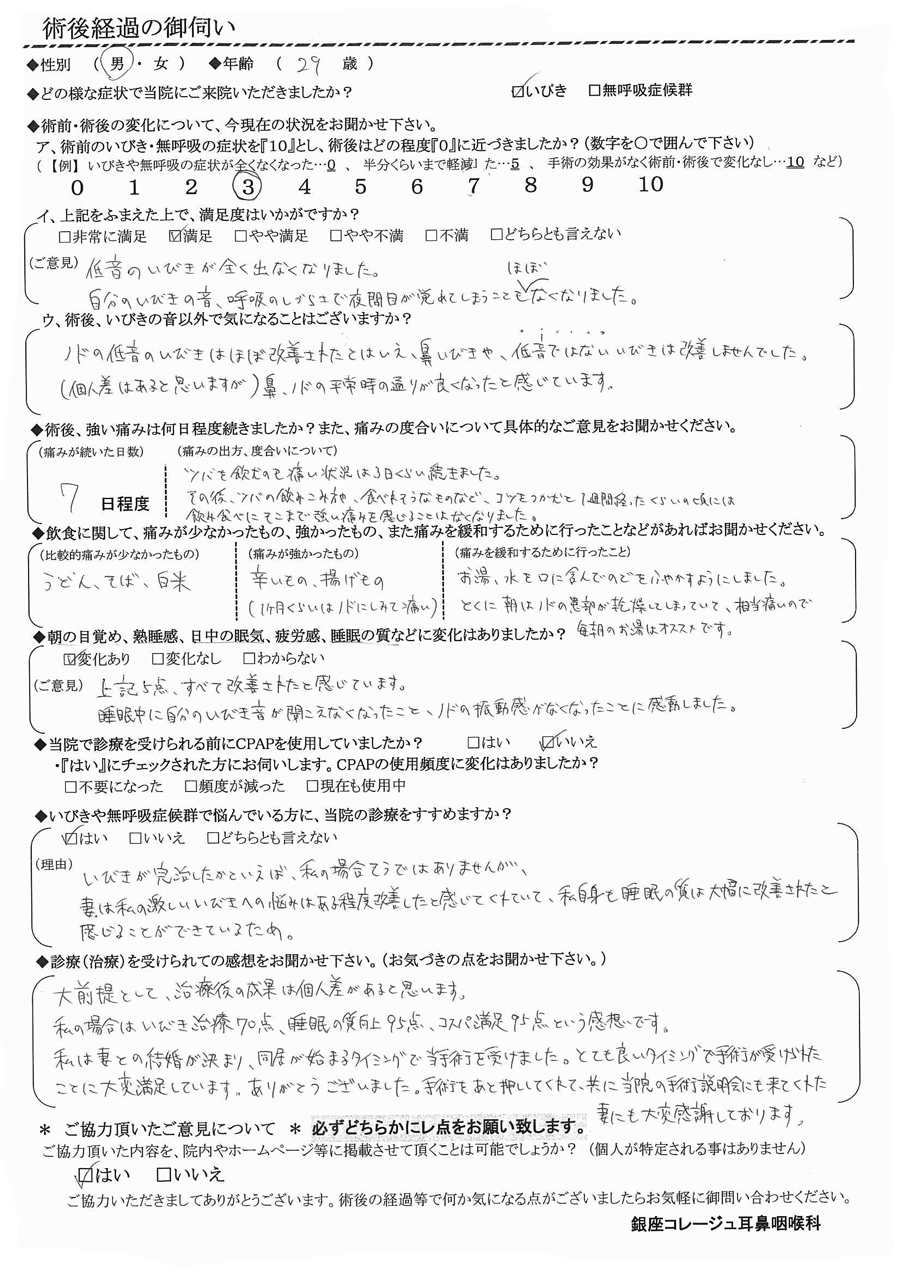 術後経過の御伺い
◆性別 （ 男 ・ 女 ） ◆年齢 （ 29 歳 ）
◆どの様な症状で当院にご来院いただきましたか？ ☑いびき □無呼吸症候群
◆術前・術後の変化について、今現在の状況をお聞かせ下さい。
ア、術前のいびき・無呼吸の症状を『10』とし、術後はどの程度『0』に近づきましたか？（数字を○で囲んで下さい）
（ 【例】 いびきや無呼吸の症状が全くなくなった…0 、 半分くらいまで軽減した…5 、 手術の効果がなく術前・術後で変化なし…10 など）
0 1 2 ③ 4 5 6 7 8 9 10
イ、上記をふまえた上で、満足度はいかがですか？
□非常に満足 ☑満足 □やや満足 □やや不満 □不満 □どちらとも言えない
（ご意見） 低音のいびきが全く出なくなりました。
自分のいびきの音、呼吸のしづらさで夜間目が覚めてしまうこともほぼなくなりました。
ウ、術後、いびきの音以外で気になることはございますか？
ノドの低音のいびきはほぼ改善されたとはいえ、鼻いびきや、低音ではないいびきは改善しませんでした。
（個人差はあると思いますが）鼻、ノドの平常時の通りが良くなったと感じています。
◆術後、強い痛みは何日程度続きましたか？また、痛みの度合いについて具体的なご意見をお聞かせください。
（痛みが続いた日数） （痛みの出方、度合いについて）
7 日程度
ツバを飲むのも痛い状況は3日くらい続きました。
その後、ツバの飲みこみ方や、食べれそうなものなど、コツをつかむと1週間経ったくらいの頃には
飲み食べにそこまで強い痛みを感じることはなくなりました。
◆飲食に関して、痛みが少なかったもの、強かったもの、また痛みを緩和するために行ったことなどがあればお聞かせください。
（比較的痛みが少なかったもの） （痛みが強かったもの） （痛みを緩和するために行ったこと）
うどん、そば、白米
辛いもの、揚げもの
（1ヶ月くらいはノドにしみて痛い）
お湯、水を口に含んでのどをふやかすようにしました。
とくに朝はノドの患部が乾燥してしまっていて、相当痛いので
毎朝のお湯はオススメです。
◆朝の目覚め、熟睡感、日中の眠気、疲労感、睡眠の質などに変化はありましたか？
☑変化あり □変化なし □わからない
（ご意見） 上記5点、すべて改善されたと感じています。
睡眠中に自分のいびき音が聞こえなくなったこと、ノドの振動感がなくなったことに感動しました。
◆当院で診療を受けられる前にCPAPを使用していましたか？ □はい ☑いいえ
・『はい』にチェックされた方にお伺いします。CPAPの使用頻度に変化はありましたか？
□不要になった □頻度が減った □現在も使用中
◆いびきや無呼吸症候群で悩んでいる方に、当院の診療をすすめますか？
☑はい □いいえ □どちらとも言えない
（理由） いびきが完治したかといえば、私の場合そうではありませんが、
妻は私の激しいいびきへの悩みはある程度改善したと感じてくれていて、私自身も睡眠の質は大幅に改善されたと
感じることができているため。
◆診療（治療）を受けられての感想をお聞かせ下さい。（お気づきの点をお聞かせ下さい。）
大前提として、治療後の成果は個人差があると思います。
私の場合はいびき治療70点、睡眠の質向上95点、コスパ満足95点という感想です。
私は妻との結婚が決まり、同居が始まるタイミングで当手術を受けました。とても良いタイミングで手術が受けられた
ことに大変満足しています。ありがとうございました。手術をあと押ししてくれて、共に当院の手術説明会にも来てくれた
妻にも大変感謝しております。
＊ ご協力頂いたご意見について ＊ 必ずどちらかにレ点をお願い致します。
ご協力頂いた内容を、院内やホームページ等に掲載させて頂くことは可能でしょうか？ （個人が特定される事はありません）
☑はい □いいえ
ご協力いただきましてありがとうございます。術後の経過等で何か気になる点がございましたらお気軽に御問い合わせください。
銀座コレージュ耳鼻咽喉科